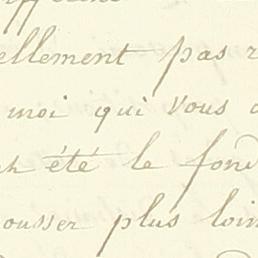 ellement pas
moi qui vous
été le fond
ousser plus loin